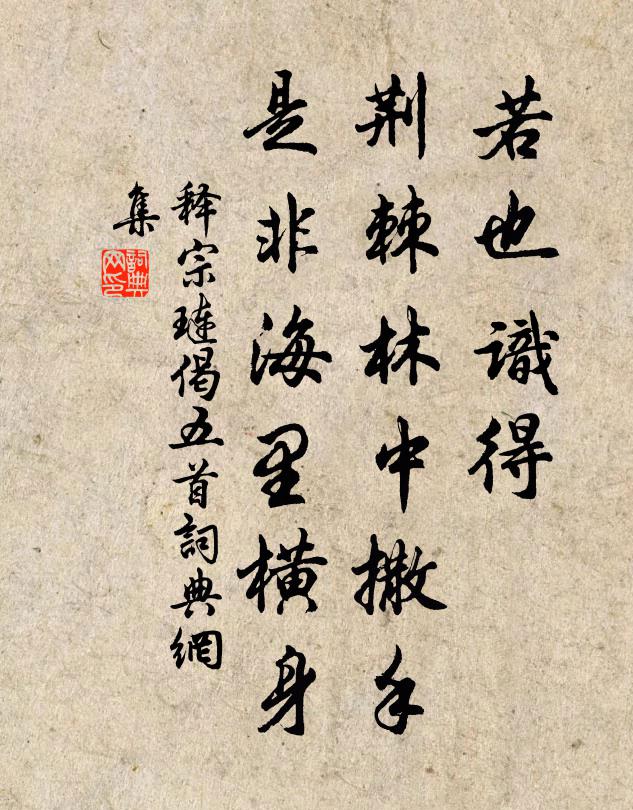 若也識得
荆棘林中撒手
是非海里橫身
释宗璉偈五首詞典網
集
詞典
网印